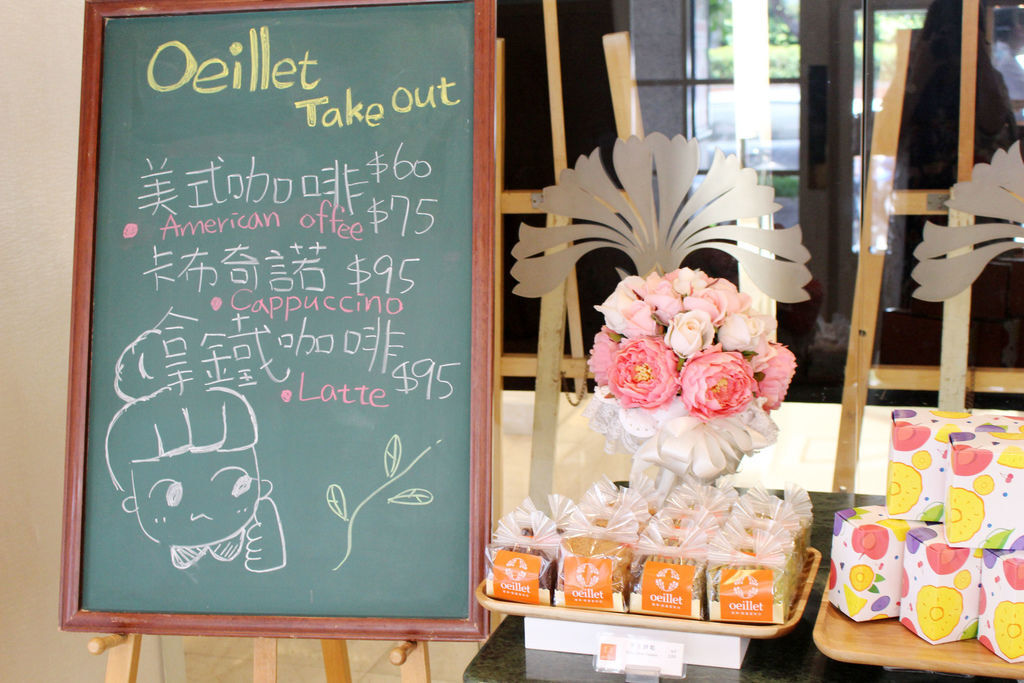 Oeillet
Take Out
美式咖啡 $60
American offee $75
卡布奇諾 $95
Cappuccino
拿鐵咖啡
Latte $95
oeillet
oeillet
oeillet
oeillet